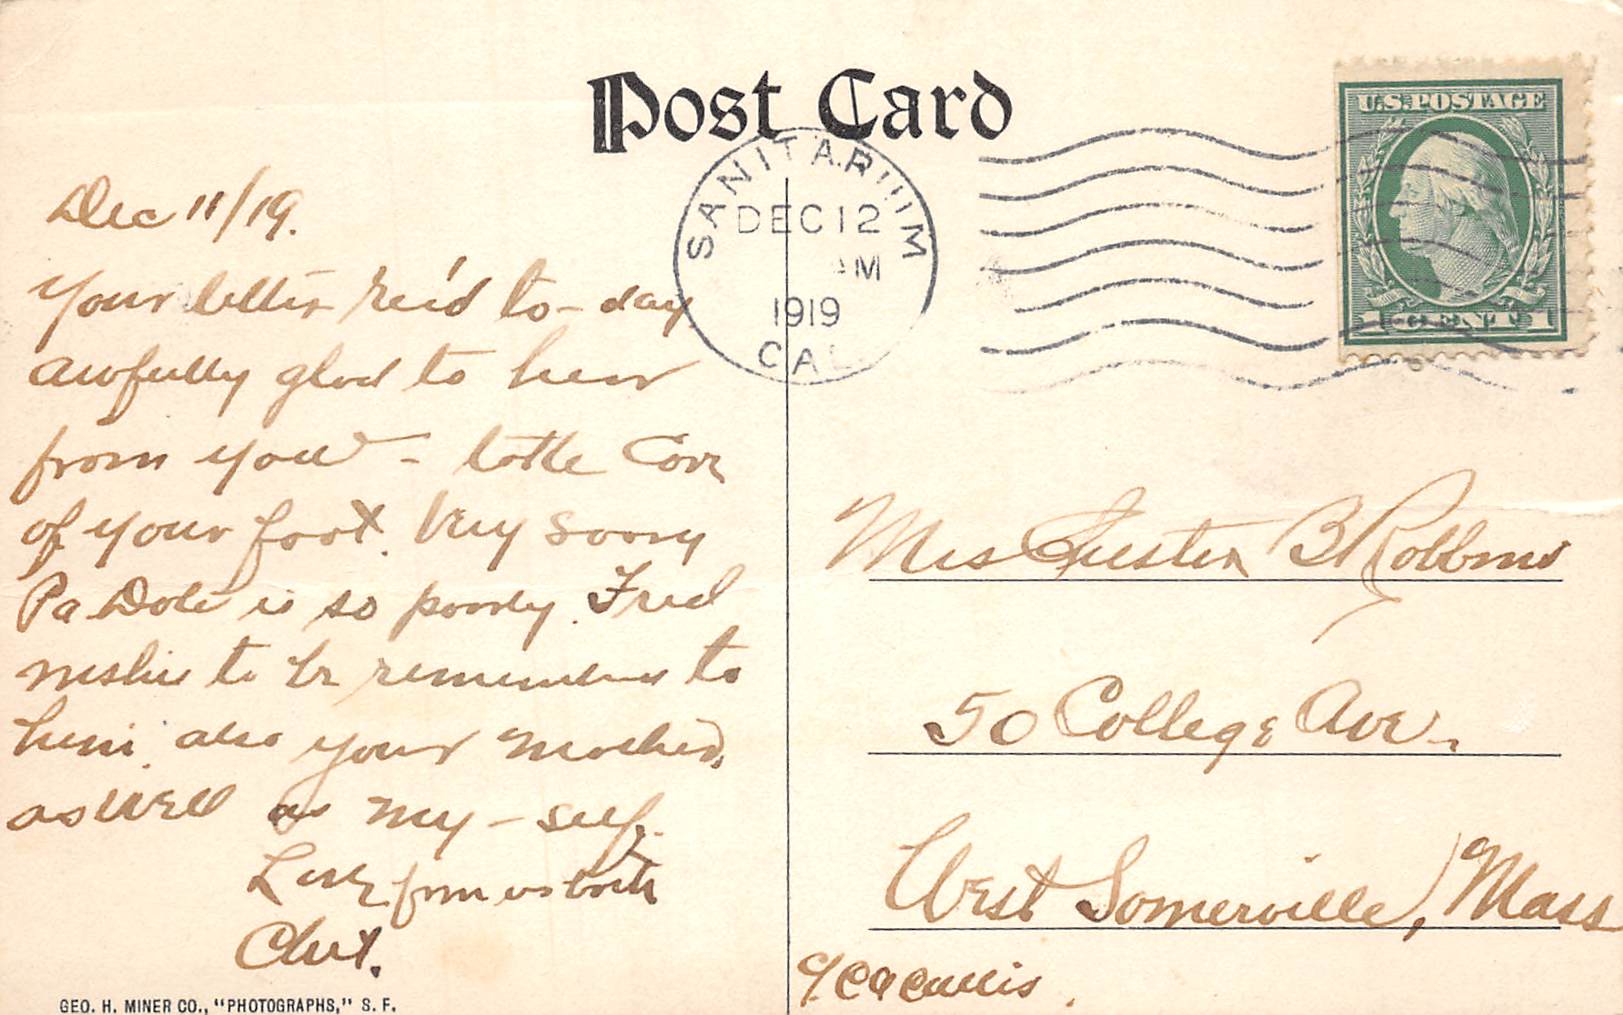 Post Card
SANITARIUM
DEC 12
AM
1919
CAL.
U.S. POSTAGE
1 CENTS 1
Dec 11/19.
Your letter rec'd to-day
awfully glad to hear
from you - take Care
of your foot. Very sorry
Pa Dole is so poorly. Fred
wishes to be remembered to
him. also your Mother,
as well as my-self.
Love from us both
Mrs B Robbins
50 College Ave.
West Somerville, Mass
GEO. H. MINER CO., "PHOTOGRAPHS," S. F.